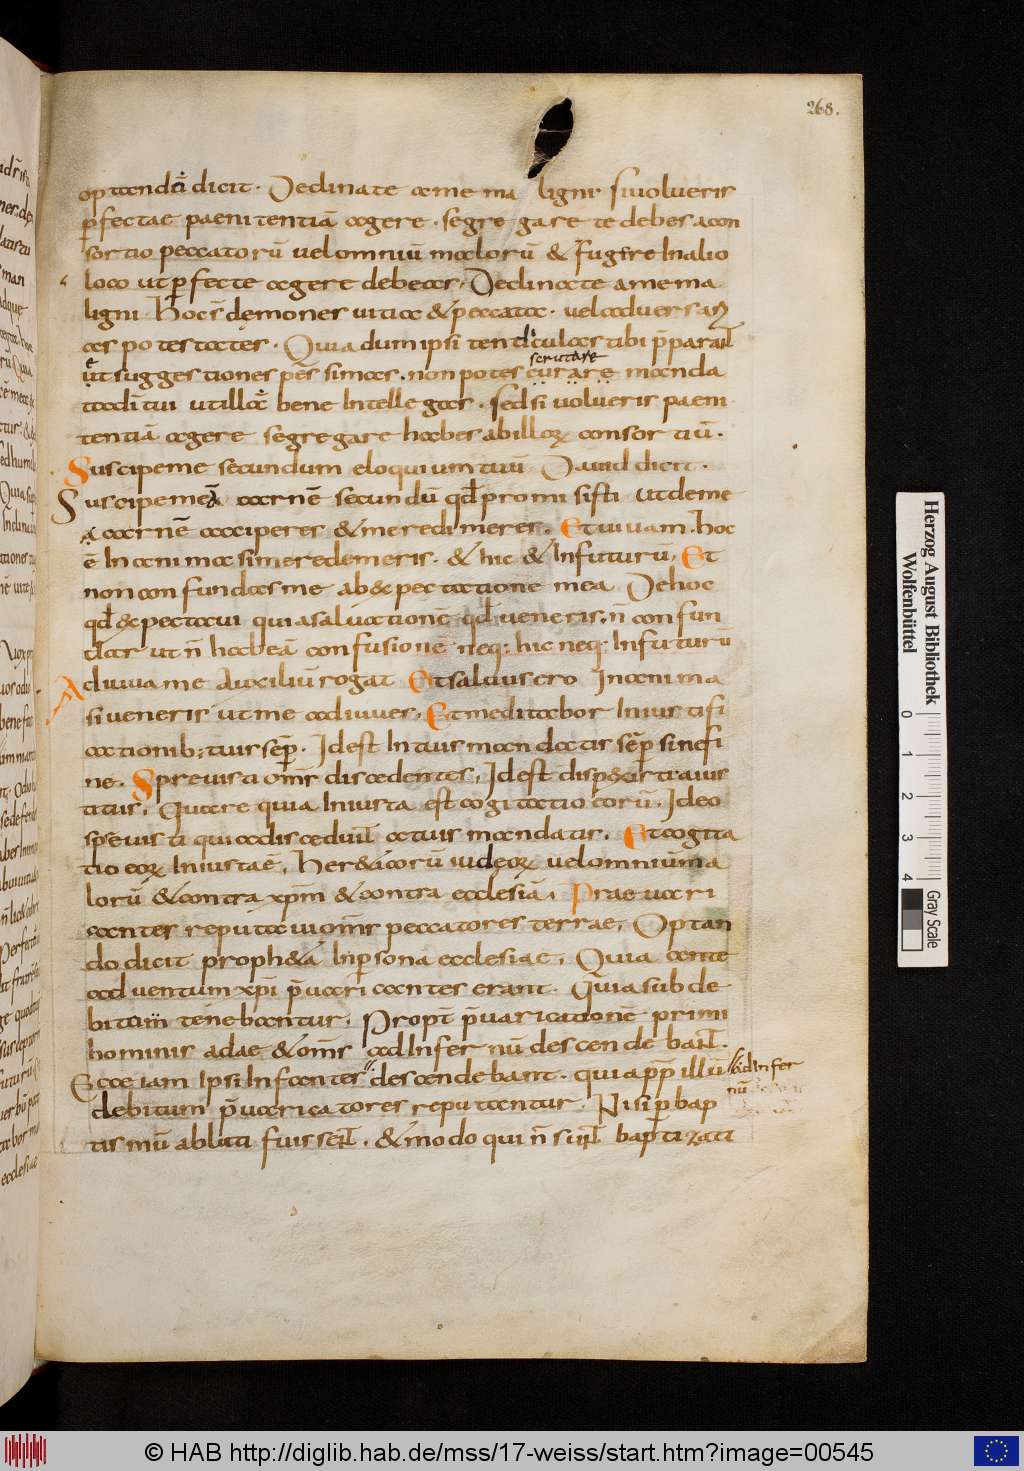 268.
optando dicit. Declinate a me maligni si uolueris
pfectae paenitentiā agere. segregare te debes a con
sortio peccatorū uel omniū malorū & fugire In alio
loco ut pfecte agere debeas, Declinate a me ma
ligni. Hoc ē demones uitia & peccata. uel aduersari
as potestates. Quia dum ipsi tendiculas tibi pparant
ut suggestiones pessimas. non potes curare manda
scrutare
ta di tui ut illa bene Intellegas. sed si uolueris paeni
tentiā agere segregare habes ab illoꝝ consortiū.
Suscipe me secundum eloquium tuū Dauid dicit.
Suscipe me carnē secundū qd promisisti ut de me
carnē acciperes & me redimeres. Et uiuam. hoc
ē In anima si me redemeris. & hic & In futurū, Et
non confundas me ab expectatione mea. De hoc
qd expectaui quia saluationē qd ueneris, n̄ confun
dar ut n̄ habeā confusionē neq; hic neq; In futurū
Adiuua me Auxiliū rogat Et saluus ero In anima
si ueneris ut me adiuues, Et meditabor In iustifi
cationib; tuis sēp. Id est In tuis mandatis sēp sine fi
ne. Spreuisti om̄s discedentes, Id est disp&is tra uis
titus. Quare quia Iniusta est cogitatio eorū. Ideo
spreuisti qui a discedunt a tuis mandatis. Et cogita
tio eoꝝ Iniusta ē, Her&icorū iudeoꝝ uel omniū ma
lorū & contra xpm̄ & contra ecclesiā. Praeuari
cantes reputaui om̄s peccatores terrae, Optan
do dicit proph&a In psona ecclesiae, Quia ante
aduentum xpi puaricantes erant. Quia sub de
bitum tenebantur, Propt puaricationē primi
hominis adae & om̄s ad Infernū descendebant.
Ecce iam ipsi Infantes descendebant. qui app illū
ad Infer
nū
debitum puaricatores reputantur. Nisi p bap
tismū abluti fuissent. & modo qui n̄ sunt baptizati
Herzog August Bibliothek
Wolfenbüttel
0 1 2 3 4
Gray Scale
© HAB http://diglib.hab.de/mss/17-weiss/start.htm?image=00545